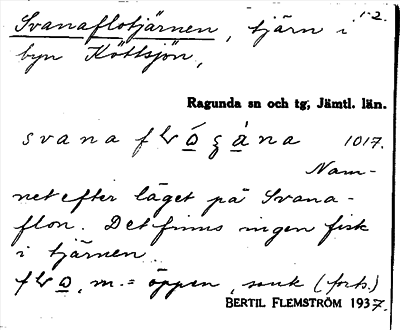 Svanaflotjärnen, tjärn i 1-2.
byn Köttsjön,
Ragunda sn och tg, Jämtl. län.
svana 1017.
Nam-
net efter läget på Svana-
flon. Det finns ingen fisk
i tjärnen.
m. = öppen, sank (forts.)
BERTIL FLEMSTRÖM 1937.